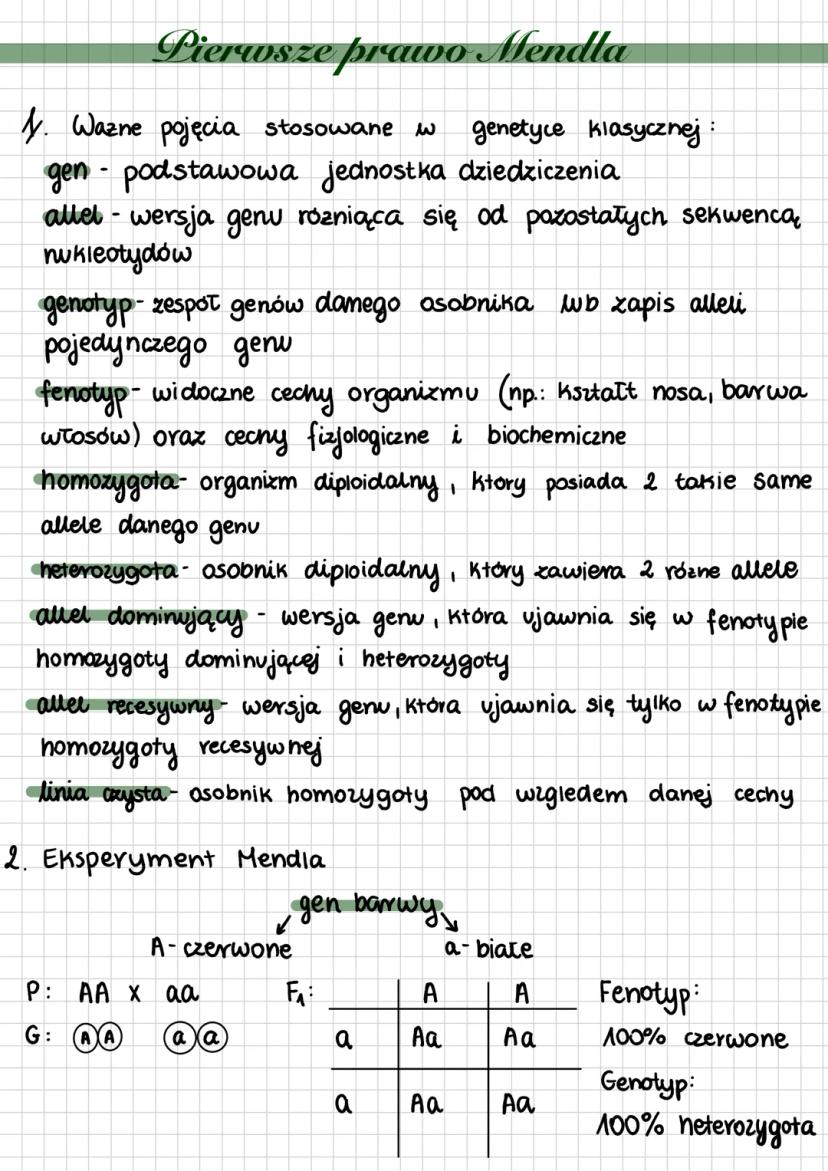 Pierwsze prawo Mendla
1. Ważne pojęcia stosowane w genetyce klasycznej:
gen - podstawowa jednostka dziedziczenia
allel - wersja genu różniąca się od pozostałych sekwencą
nukleotydów
genotyp - zespół genów danego osobnika lub zapis alleli
pojedynczego genu
fenotyp - widoczne cechy organizmu (np.: kształt nosa, barwa
włosów) oraz cechy fizjologiczne i biochemiczne
homozygota - organizm diploidalny, który posiada 2 takie same
allele danego genu
heterozygota - osobnik diploidalny, który zawiera 2 różne allele
allel dominujący - wersja genu, która ujawnia się w fenotypie
homozygoty dominującej i heterozygoty
allel recesywny - wersja genu, która ujawnia się tylko w fenotypie
homozygoty recesywnej
linia czysta - osobnik homozygoty pod względem danej cechy
2. Eksperyment Mendla
gen barwy
A - czerwone a - białe
P: AA x aa F1: A A Fenotyp:
G: A A a a a Aa Aa 100% czerwone
Genotyp:
a Aa Aa 100% heterozygota